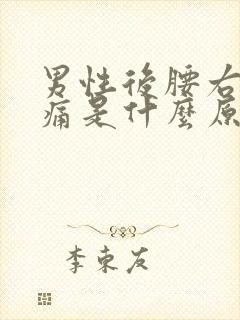 男性後腰右
痛是什麼原
李東友